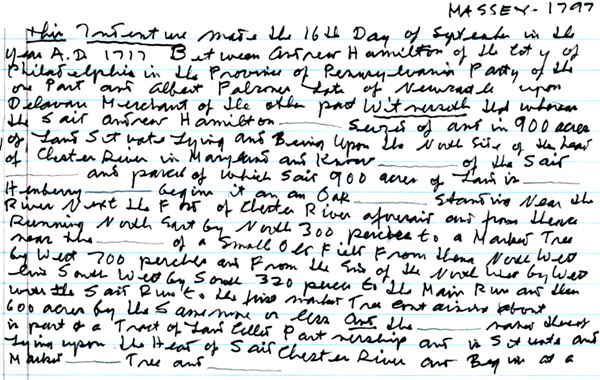 MASSEY - 1797
This Indenture made the 16th Day of September in the
year A.D. 1717 Between Andrew Hamilton of the City of
Philadelphia in the Province of Pennsylvania Party of the
one Part and Albert Late of Newcastle upon
Delaware Merchant of the other part Witnesseth that whereas
the Said Andrew Hamilton ______ Seized of and in 900 acres
of Land Situate Lying and Being Upon the North Side of the Head
of Chester River in Maryland and Known ______ of the Said
______ and parcel of which Said 900 acres of Land is ______
______ begin it an an Oak ______ Standing Near the
River Next the of Chester River aforesaid and from thence
Running North East by North 300 perches to a Marked Tree
near the ______ of a Small Old Field From thence North West
by West 700 perches and From the End of the North West by West
line South West by South 320 perches to the Main Run and then
with the Said Run to the first marked Tree Containing about
600 acres be the Same more or less And the ______
is part of a Tract of Land Called Partnership and is Situate and
Lying upon the Head of Said Chester River and Begin at a
Marked ______ Tree and ______